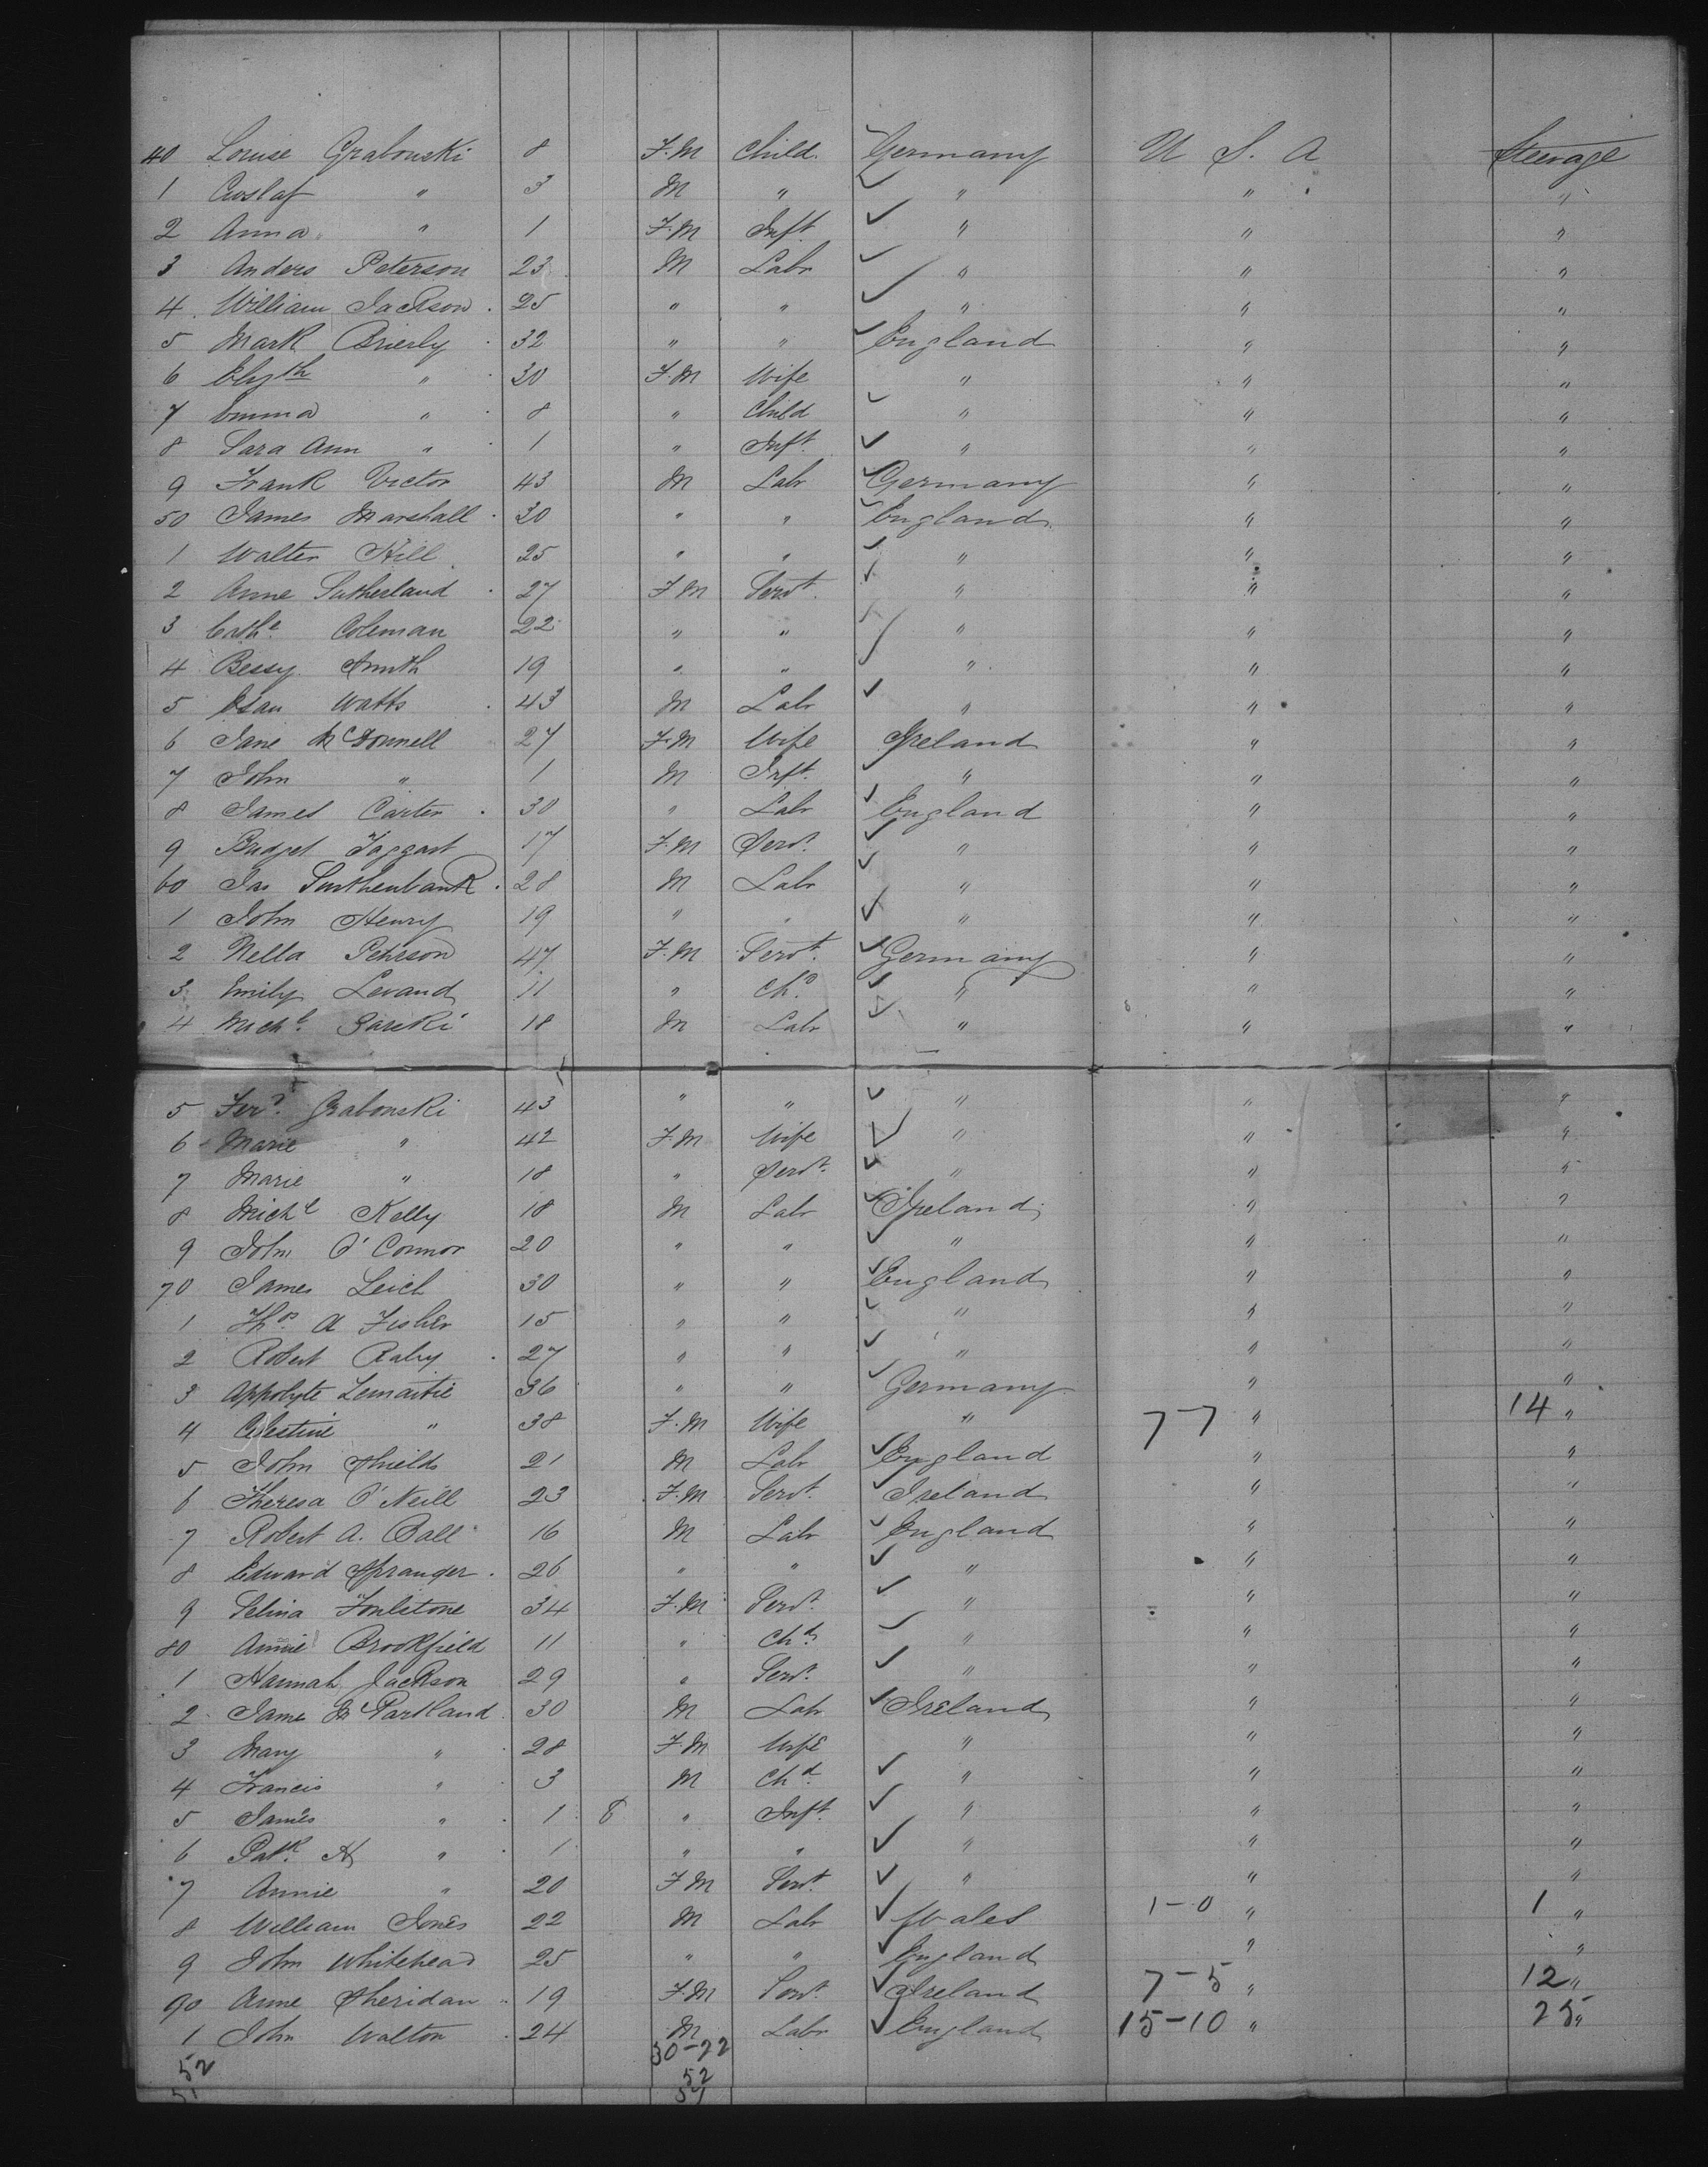 40 Louise Grabouski 8 F.M Child Germany U S. A Steerage
1 Coslaf " 3 M " " " "
2 Anna " 1 F.M Inft " " "
3 Anders Peterson 23 M Labr " " "
4 William Jackson 25 " " " " "
5 Mark Brierly 32 " " England " "
6 Elizth " 30 F.M Wife " " "
7 Emma " 8 " Child " " "
8 Sara Ann " 1 " Inft. " " "
9 Frank Victor 43 M Labr Germany " "
50 James Marshall 30 " " England " "
1 Walter Hill 25 " " " " "
2 Anne Sutherland 27 F M Servt. " " "
3 Cathe Coleman 22 " " " " "
4 Bessy Smith 19 " " " " "
5 Watts 43 M Labr " " "
6 Jane McDonnell 27 F.M Wife Ireland " "
7 John " 1 M Inft. " " "
8 James Carter 30 " Labr England " "
9 Bridget Taggart 17 F.M Servt. " " "
60 Jas Southenbank 28 M Labr " " "
1 John Henry 19 " " " " "
2 Nella Pehrson 47 F.M Servt. Germany " "
3 Emily Levand 11 " Chd " " "
4 Michl. Bareki 18 M Labr " " "
5 Ferd. Grabouski 43 " " " " "
6 Marie " 42 F.M Wife " " "
7 Marie " 18 " Servt. " " "
8 Michl Kelly 18 M Labr Ireland " "
9 John O'Connor 20 " " " " "
70 James Leich 30 " " England " "
1 Thos. A Fisher 15 " " " " "
2 Robert Raby 27 " " " " "
3 Appolyte Lemaitie 36 " " Germany " "
4 Celestine " 38 F.M Wife " 7-7 " 14 "
5 John Shields 21 M Labr England " "
6 Theresa O'Neill 23 F.M Servt. Ireland " "
7 Robert A. Ball 16 M Labr England " "
8 Edward Spranger 26 " " " " "
9 Selina Foulstone 34 F.M Servt. " " "
80 Annie Brookfield 11 " Chd " " "
1 Hannah Jackson 29 " Servt. " " "
2 James McPartland 30 M Labr Ireland " "
3 Mary " 28 F.M Wife " " "
4 Francis " 3 M Chd. " " "
5 James " 1 8 " Inft. " " "
6 Patk. H " 1 " " " " "
7 Annie " 20 F M Servt. " " "
8 William Jones 22 M Labr Wales 1-0 " 1 "
9 John Whitehead 25 " " England " "
90 Anne Sheridan 19 F.M Servt. Ireland 7-5 " 12 "
1 John Walton 24 M Labr England 15-10 " 25 "
30-22
52 52
51 51